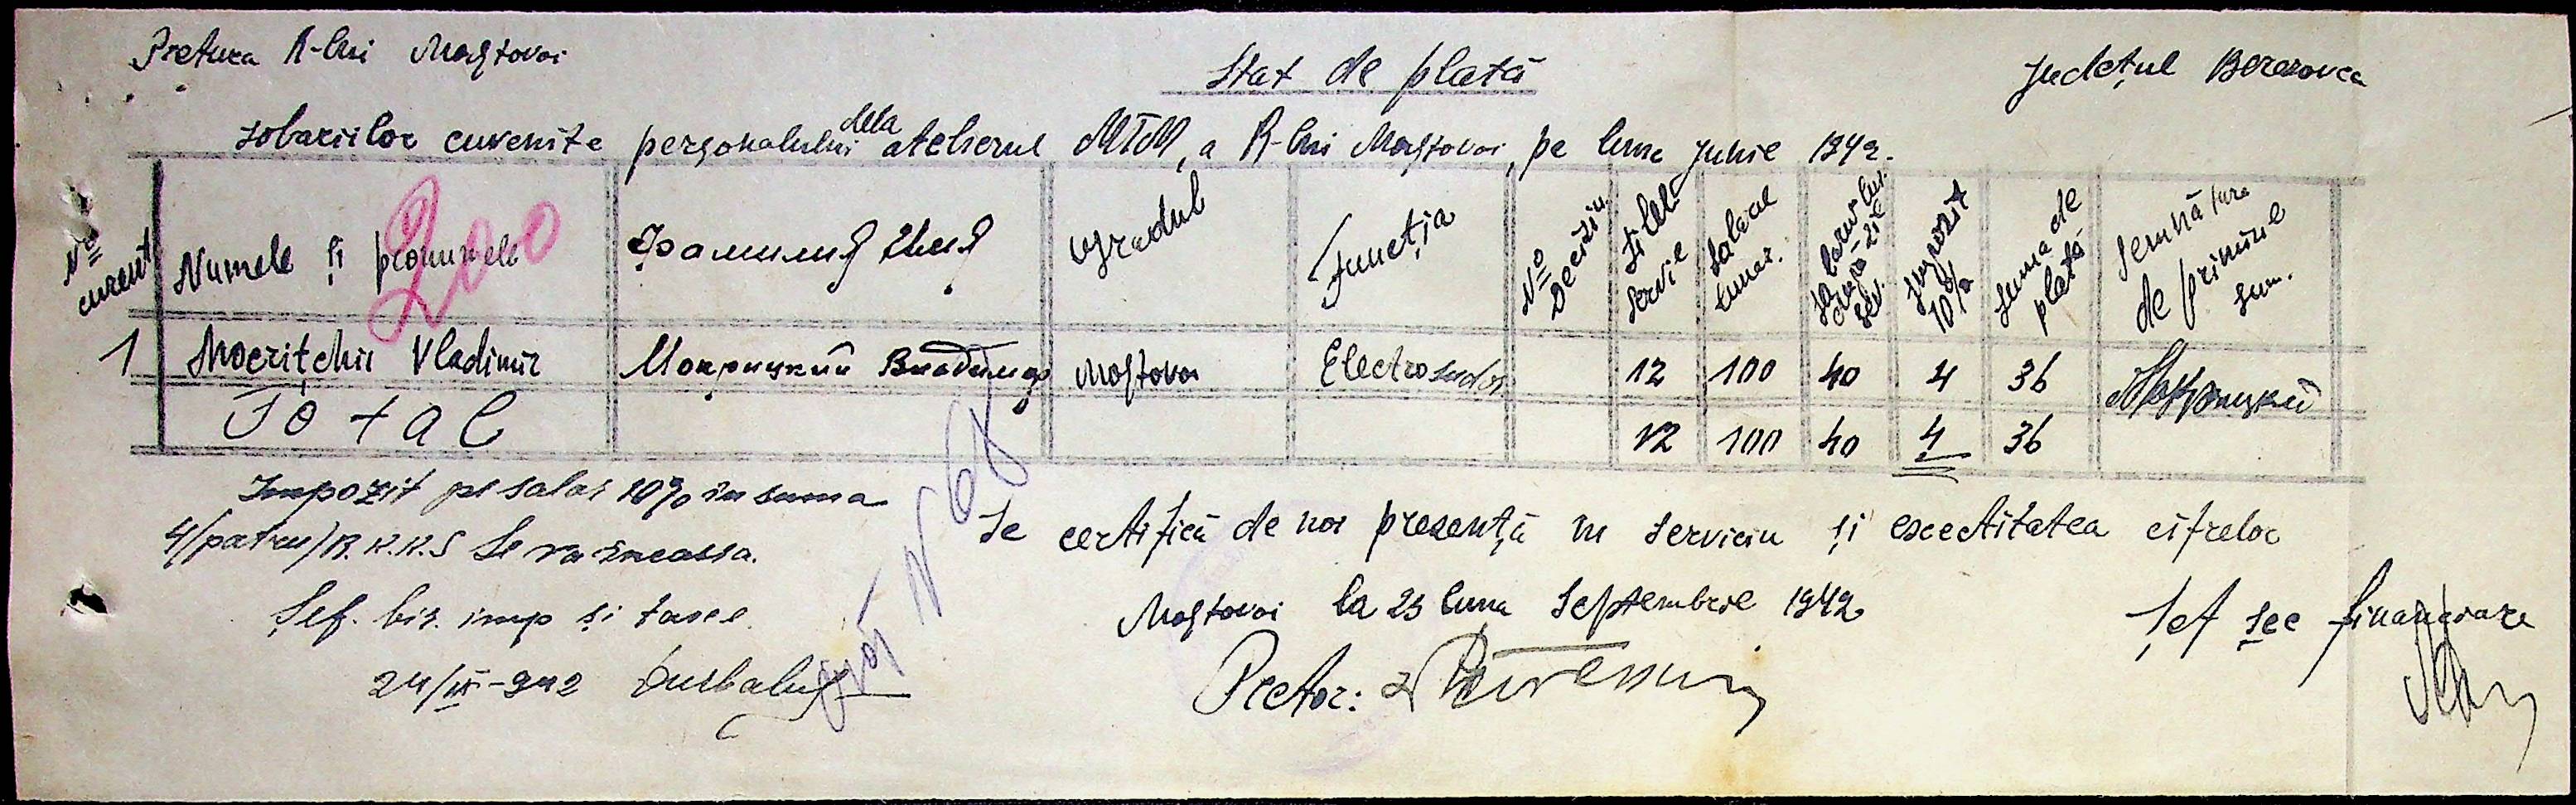 Pretura R-lui Mostovoi
Stat de plată
Județul Berezovca
solariilor cuvenite personalului dela atelierul MTM, a R-lui Mostovoi, pe luna Junie 1942.
No curent
Numele și pronumele
200
Фамилия Имя
Ogradul
Funcția
No Deciziu
Zilele servie
Salarul lunar.
Impozit 10%
Suma de plată
Semnătura de primire sum.
1 Mocrițchii Vladimir Мокрицкий Владимир Mostovoi Electrosudor 12 100 40 4 36 Мокрицкий
Total 12 100 40 4 36
Impozit pe salar 10% în suma
4/patru/R.K.K.S Se va încassa.
Șef. bir. imp și taxe
24/IX-942
Se certifică de noi prezență în serviciu și exectitatea cifrelor
Mostovoi la 23 luna Septembrie 1942
Pretor:
Șef sec financiare